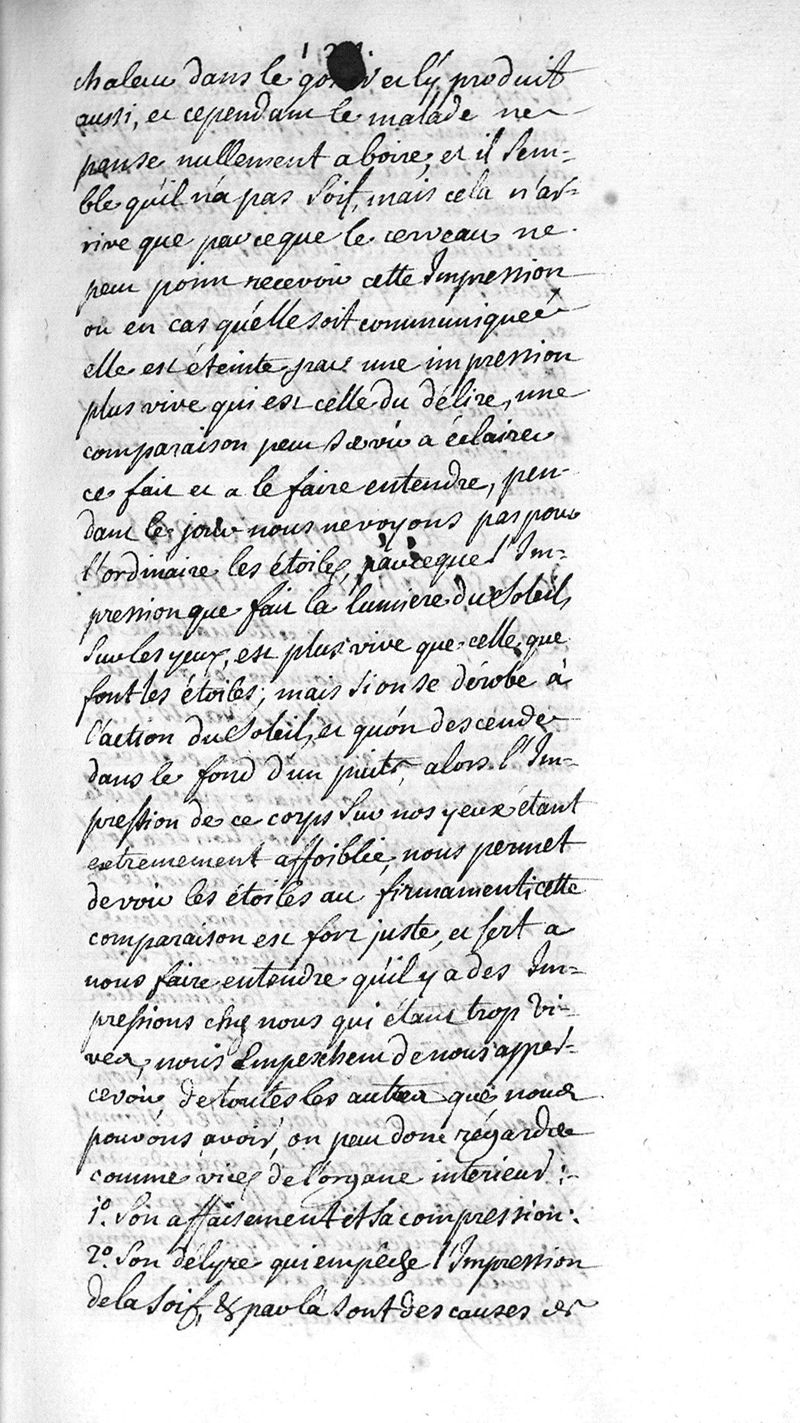 chaleur dans le et l'y produit
aussi, et cependant le malade ne
pense nullement a boire, et il sem-
ble qu'il n'a pas soif, mais cela n'ar-
rive que parceque le cerveau ne
peut point recevoir cette Impression
ou en cas qu'elle soit communiqueé
elle est éteinte par une impression
plus vive qui est celle du délire, une
comparaison peut servir a éclairer
ce fait et a le faire entendre, pen-
dant le jour nous ne voyons pas pour
l'ordinaire les étoiles, parceque l'Im-
pression que fait la lumiere du Soleil
sur les yeux, est plus vive que celle que
font les étoiles; mais si on se dérobe à
l'action du Soleil, et qu'on descende
dans le fond d'un puits, alors l'Im-
pression de ce corps sur nos yeux étant
extremement affoiblie, nous permet
de voir les étoiles au firmament; cette
comparaison est fort juste, et sert a
nous faire entendre qu'il y a des Im-
pressions chez nous qui étant trop vi-
ves, nous Empeschent de nous apper-
cevoir de toutes les autres que nous
pouvons avoir, on peut donc régarder
comme vices de l'organe interieur:
1.º Son affaisement et sa compression.
2.º Son délyre qui empêche l'Impression
de la soif, & par là sont des causes et